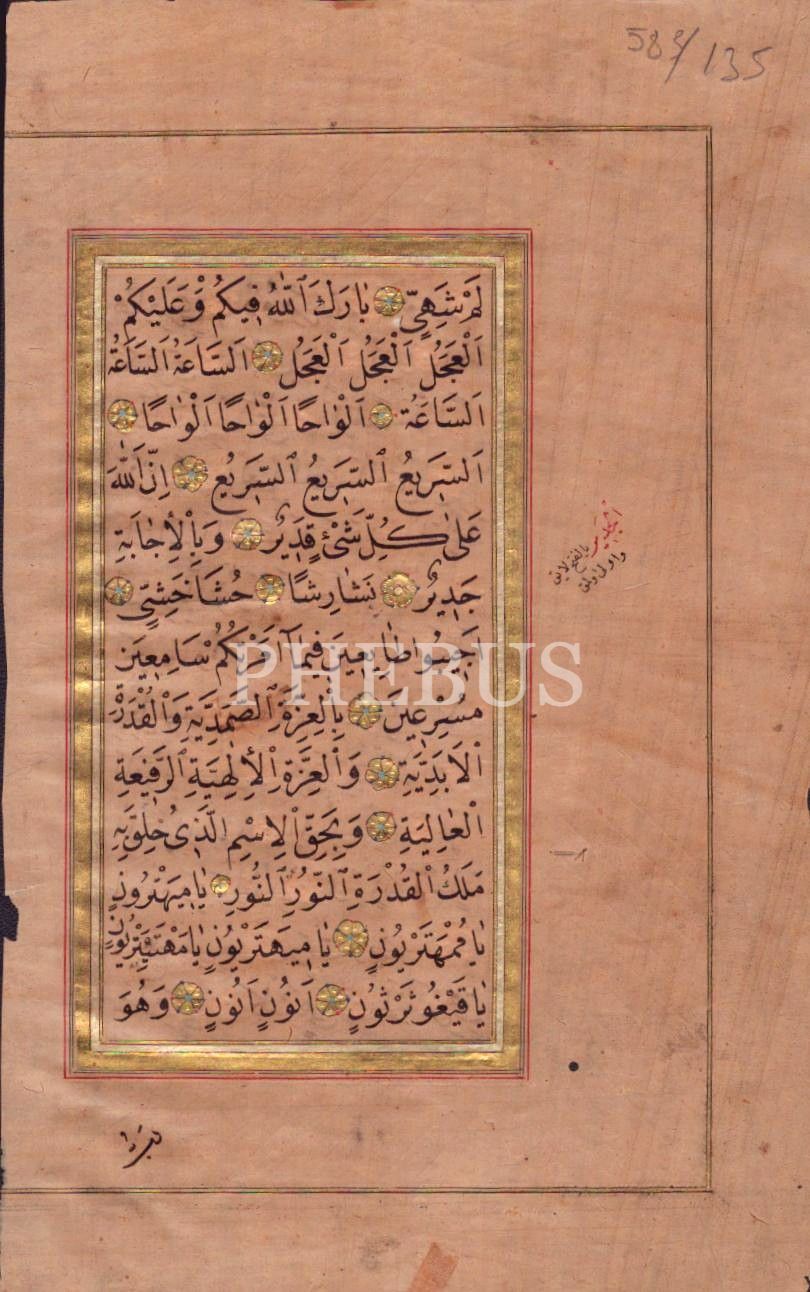 58 /135
لَمْ شَهِيٍّ بَارَكَ اللّٰهُ فِيكُمْ وَعَلَيْكُمْ
اَلْعَجَلُ اَلْعَجَلُ اَلْعَجَلُ اَلسَّاعَةُ اَلسَّاعَةُ
اَلسَّاعَةُ اَلْوَاحًا اَلْوَاحًا اَلْوَاحًا
اَلسَّرِيعُ السَّرِيعُ السَّرِيعُ اِنَّ اللّٰهَ
عَلٰى كُلِّ شَيْءٍ قَدِيرٌ وَبِالْاِجَابَةِ
جَدِيرٌ نَشَارِشًا حُشَا خَشِيٍّ
اَجِيبُوا طَايِعِينَ فِيمَا آمُرُكُمْ سَامِعِينَ
مُسْرِعِينَ بِالْعِزَّةِ الصَّمَدِيَّةِ وَالْقُدْرَةِ
الْاَبَدِيَّةِ وَالْعِزَّةِ الْاِلٰهِيَّةِ الرَّفِيعَةِ
الْعَالِيَةِ وَبِحَقِّ الْاِسْمِ الَّذِي خُلِقَ بِهِ
مَلَكُ الْقُدْرَةِ النُّورِ النُّورِ يَا مِيهَتْرُونٍ
يَا مُمْهَتَرْيُونٍ يَا مِيهَتَرْيُونٍ
اَنُونٍ اَنُونٍ وَهُوَ
PHEBUS